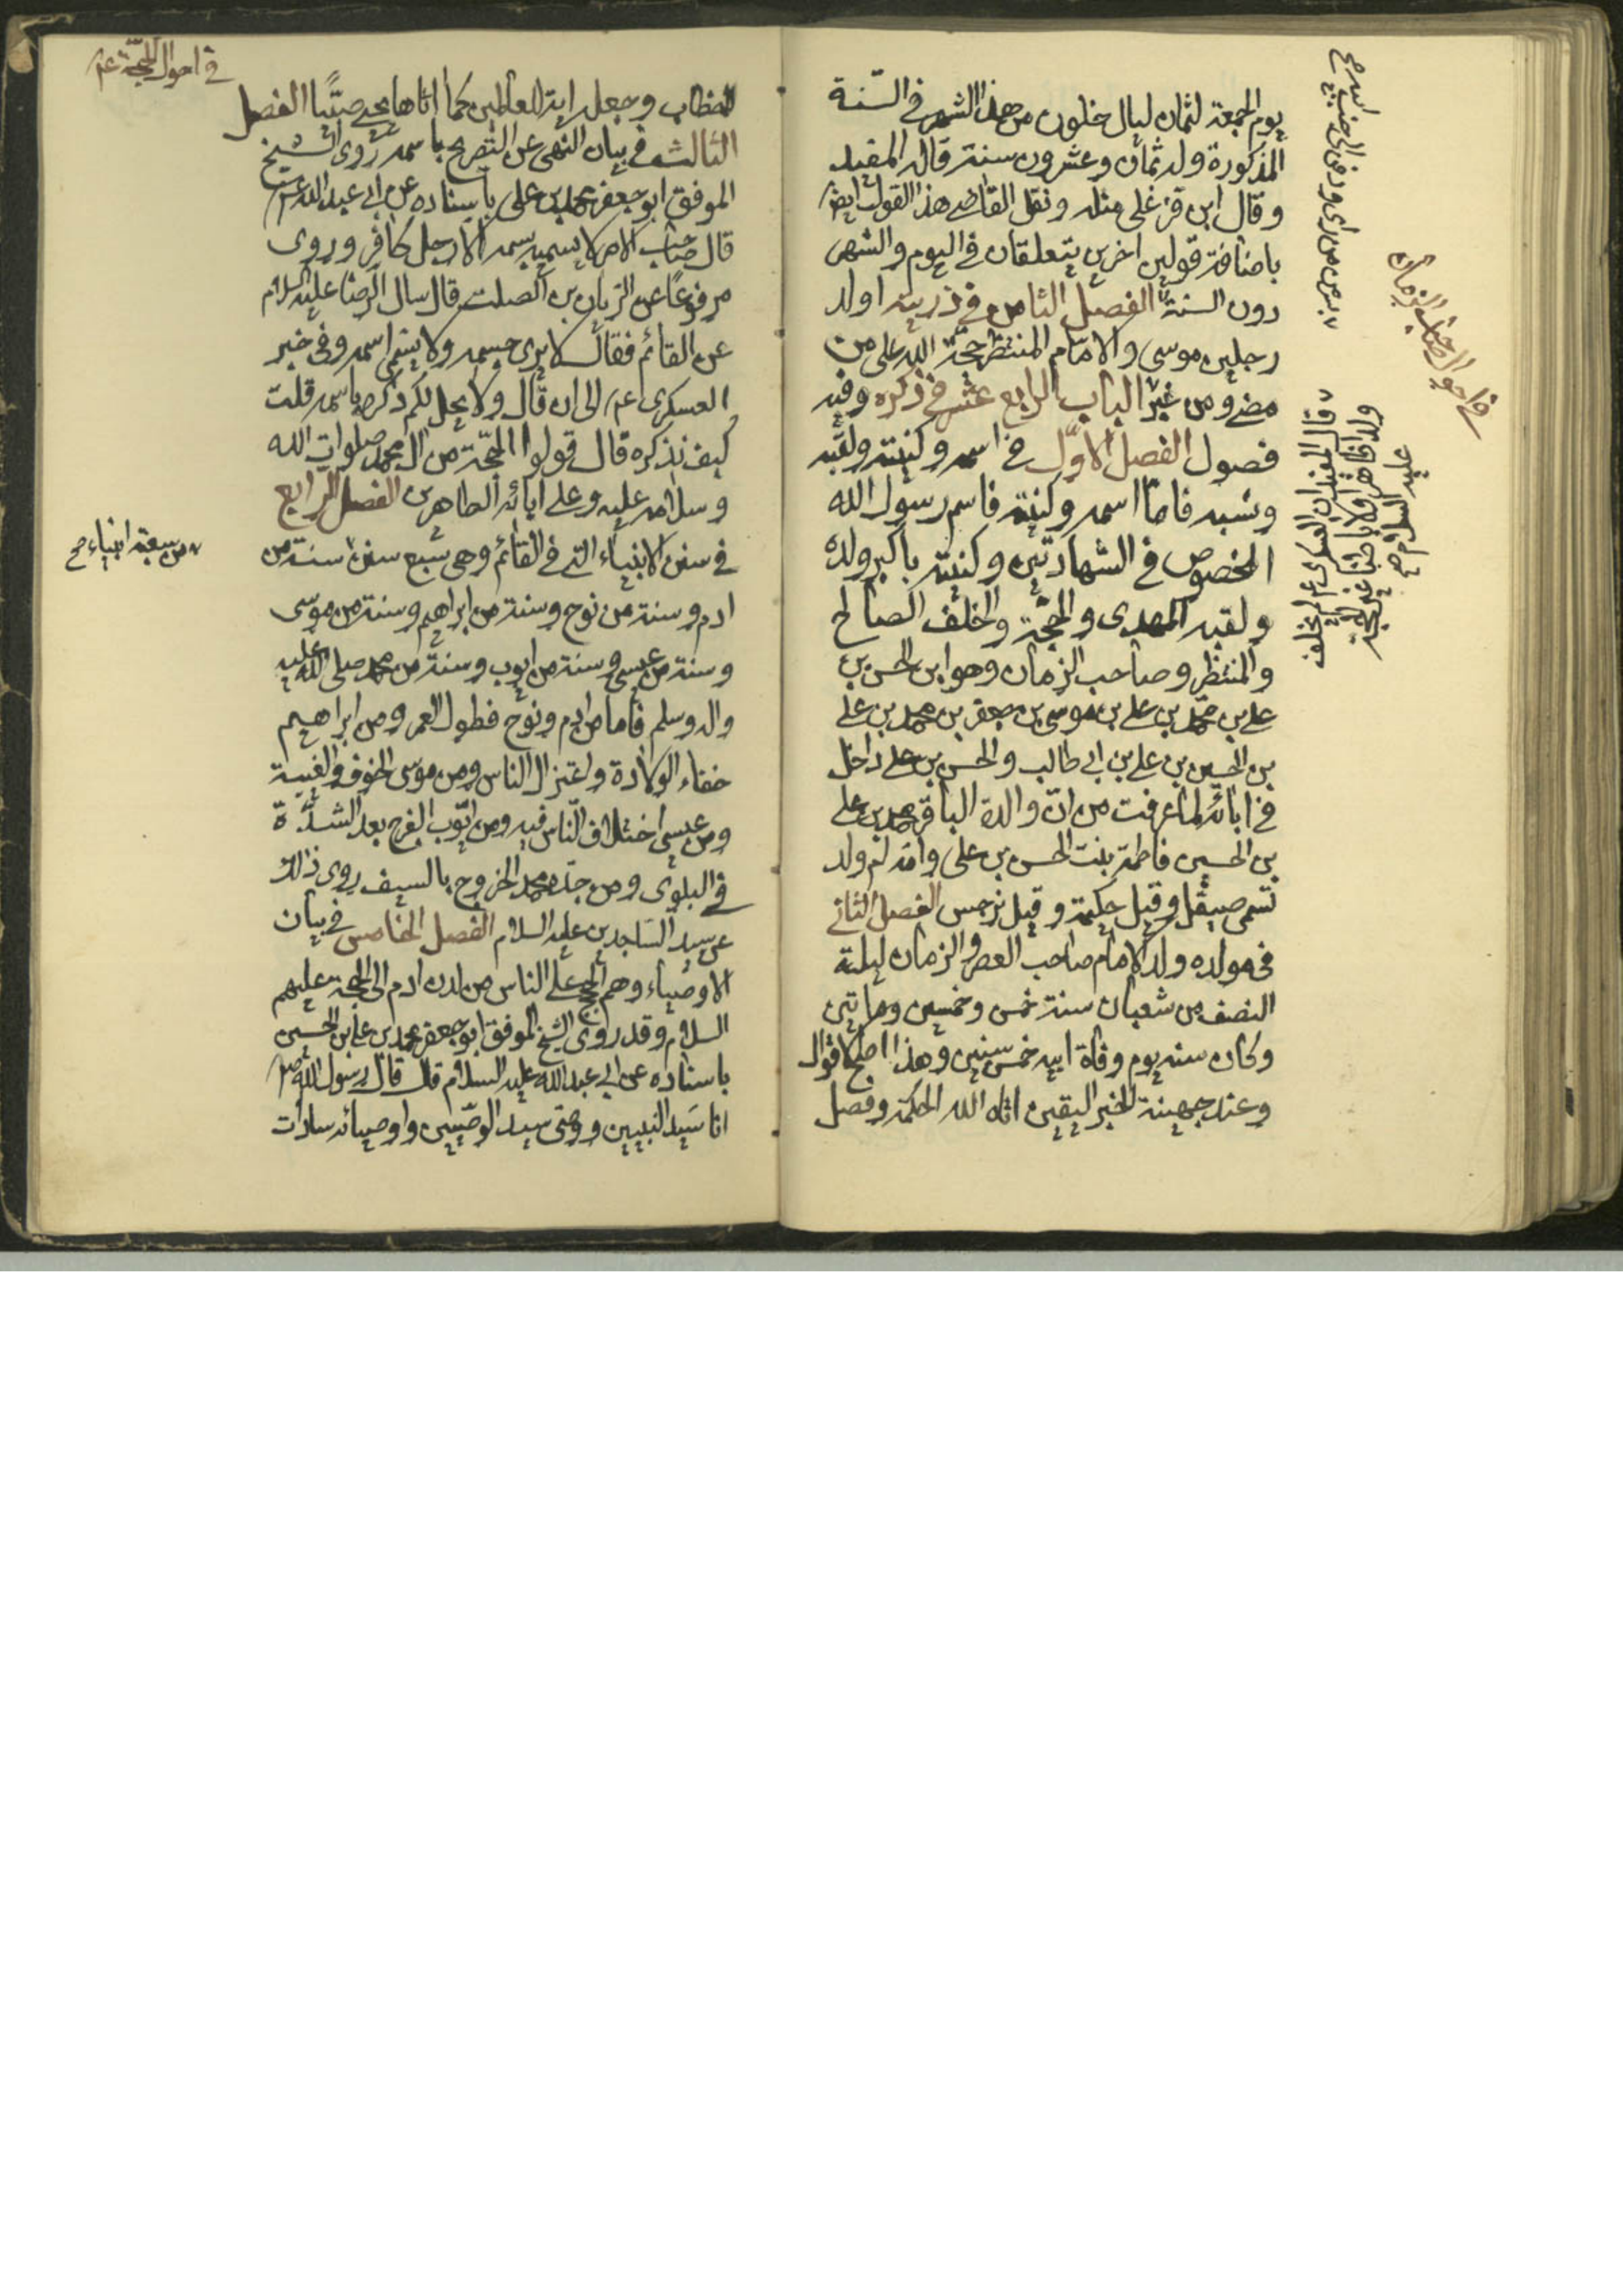 يوم الجمعة لثمان ليال خلون من هذا الشهر في السّنة
المذكورة وله ثمان وعشرون سنة قاله المفيد
وقال ابن قزغلي مثله ونقل القاضي هذا القول ايضا
باضافة قولين اخرين يتعلقان في اليوم والشهر
دون السنة الفصل الثامن في ذريته اولد
رجلين موسى والامام المنتظر حجّة الله على من
مضى ومن غبر الباب الرابع عشر في ذكره وفيه
فصول الفصل الاوّل في اسمه وكنيته ولقبه
ونسبه فامّا اسمه وكنيته فاسم رسول الله
المخصوص في الشهادتين وكنيته باكبر ولده
ولقبه المهدى والحجّة والخلف الصالح
والمنتظر وصاحب الزمان وهو ابن الحسن بن
علي بن محمّد بن علي بن موسى بن جعفر بن محمد بن علي
بن الحسين بن علي بن ابي طالب والحسن بن علي داخل
في ابائه لما عرفت من انّ والدة الباقر محمد بن علي
بن الحسين فاطمة بنت الحسن بن علي وامّه ام ولد
تسمى صيقل وقيل حكيمة وقيل نرجس الفصل الثاني
في مولده ولد الامام صاحب العصر والزمان ليلة
النصف من شعبان سنة خمس وخمسين وماتين
وكان سنه يوم وفاة ابيه خمس سنين وهذا اصح الاقوال
وعند جهينة الخبر اليقين اتاه الله الحكمة وفصل
في احوال صاحب الزمان
قال المفيد ان العسكرى ع لم يخلف
ولدا ظاهرا ولا باطنا غير الحجة
عليه السلام صح
في احوال الحجّة ع
الخطاب وجعله اية للعالمين كما اتاها يحيى صبيّا الفصل
الثالث في بيان النهى عن التصريح باسمه روى الشيخ
الموفق ابو جعفر محمد بن على باسناده عن ابي عبد الله ع
قال صاحب الامر لا يسميه باسمه الا رجل كافر وروى
مرفوعًا عن الريان بن الصلت قال سال الرضا عليه السلام
عن القائم فقال لا يرى جسمه ولا يسمى اسمه وفى خبر
العسكرى ع الى ان قال ولا يحل لكم ذكره باسمه قلت
كيف نذكره قال قولوا الحجّة من ال محمد صلوات الله
وسلامه عليه وعلى ابائه الطاهرين الفصل الرابع
في سنن الانبياء التي في القائم وهى سبع سنن سنة من
ادم وسنة من نوح وسنة من ابراهيم وسنة من موسى
وسنة من عيسى وسنة من ايوب وسنة من محمد صلى الله عليه
واله وسلم فاما من ادم ونوح فطول العمر ومن ابراهيم
خفاء الولادة واعتزال الناس ومن موسى الخوف والغيبة
ومن عيسى اختلاف النّاس فيه ومن ايّوب الفرج بعد الشدّة
في البلوى ومن جدّه محمد الخروج بالسيف روى ذلك
عن سيد السّاجدين عليه السلام الفصل الخامس في بيان
الاوصياء وهم الحجج على الناس من لدن ادم الى الحجة عليهم
السلام وقد روى الشيخ الموفق ابو جعفر محمد بن علي بن الحسين
باسناده عن ابي عبد الله عليه السلام قال قال رسول الله ص
انا سيّد النبيين ووصيّى سيد الوصّيين واوصيائه سادات
من سبعة انبياء صح